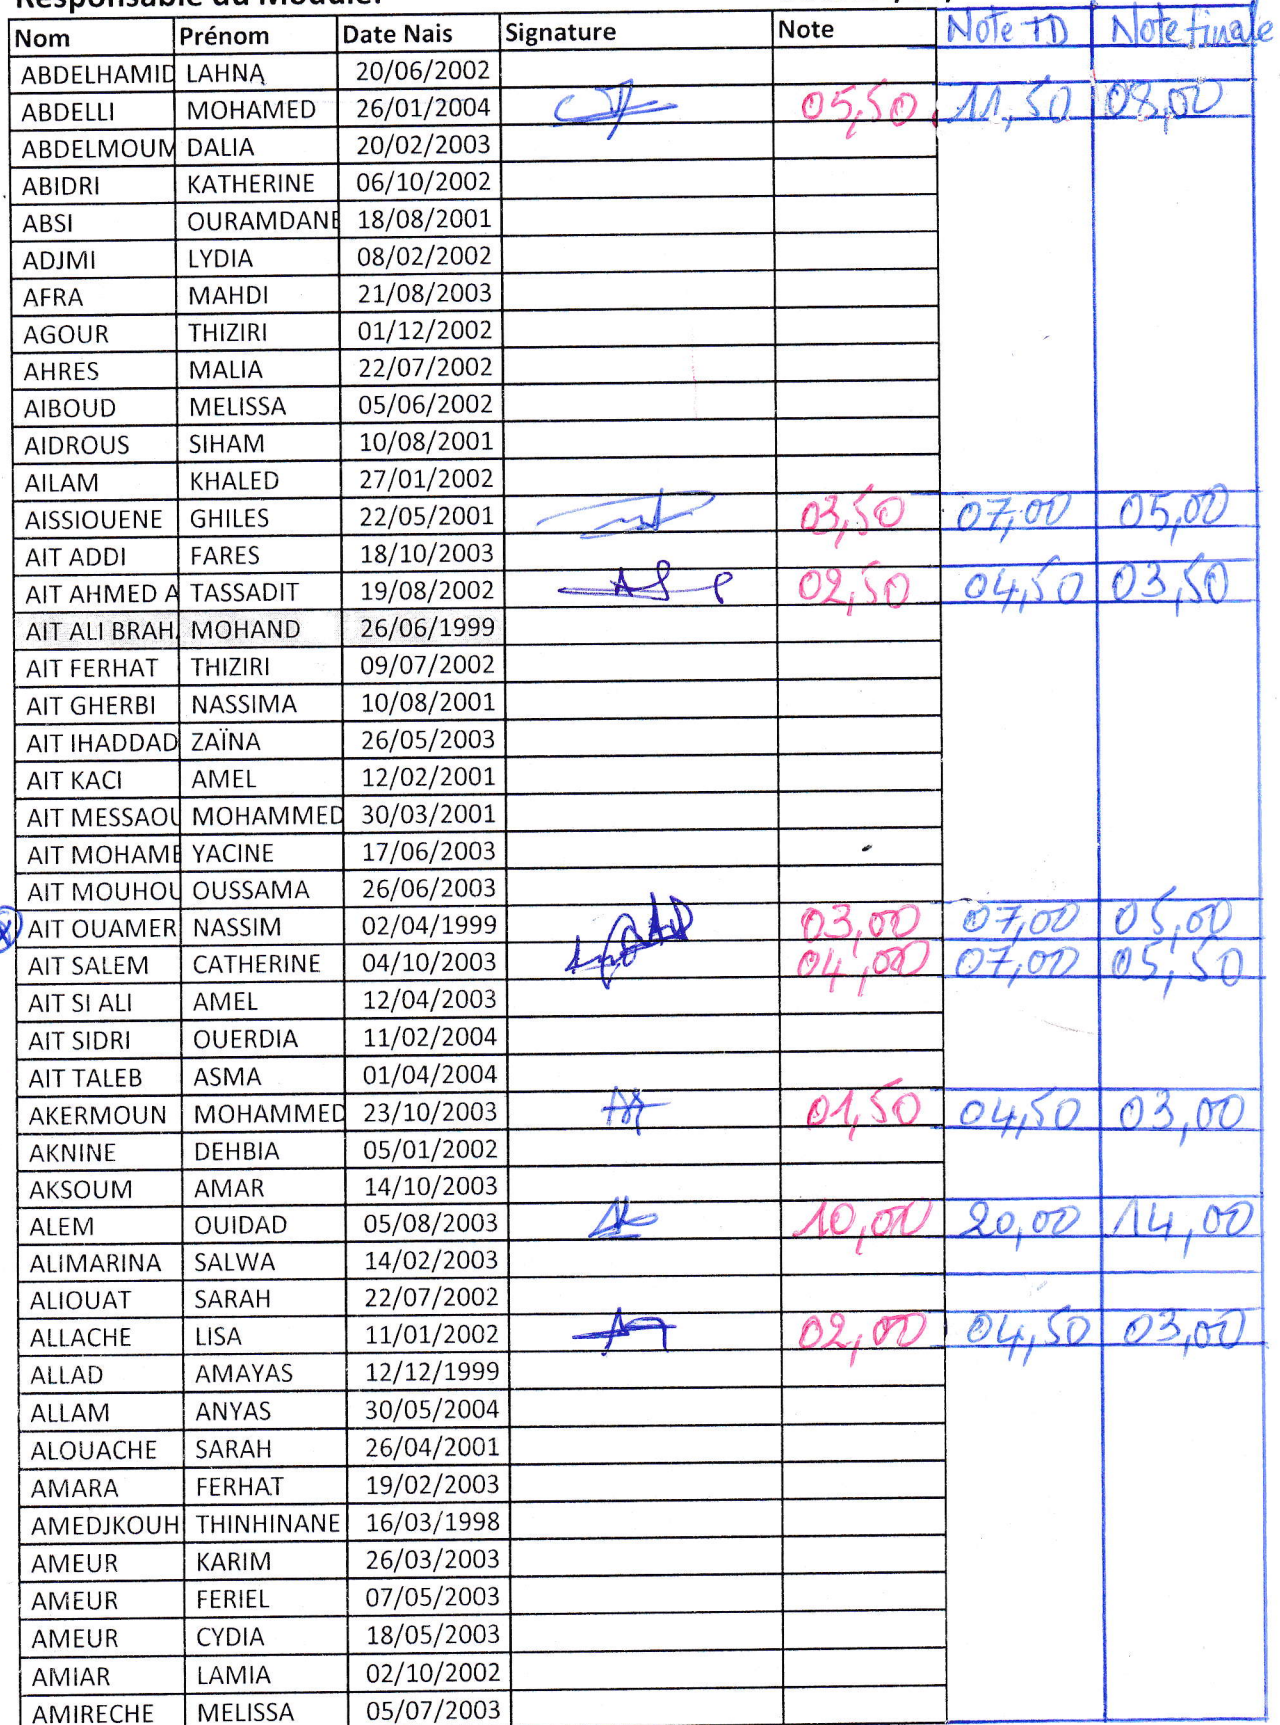 Responsable du Module:
Nom Prénom Date Nais Signature Note Note TD Note finale
ABDELHAMID LAHNA 20/06/2002
ABDELLI MOHAMED 26/01/2004 05,50 11,50 08,00
ABDELMOUM DALIA 20/02/2003
ABIDRI KATHERINE 06/10/2002
ABSI OURAMDANE 18/08/2001
ADJMI LYDIA 08/02/2002
AFRA MAHDI 21/08/2003
AGOUR THIZIRI 01/12/2002
AHRES MALIA 22/07/2002
AIBOUD MELISSA 05/06/2002
AIDROUS SIHAM 10/08/2001
AILAM KHALED 27/01/2002
AISSIOUENE GHILES 22/05/2001 03,50 07,00 05,00
AIT ADDI FARES 18/10/2003
AIT AHMED A TASSADIT 19/08/2002 02,50 04,50 03,50
AIT ALI BRAH MOHAND 26/06/1999
AIT FERHAT THIZIRI 09/07/2002
AIT GHERBI NASSIMA 10/08/2001
AIT IHADDAD ZAÏNA 26/05/2003
AIT KACI AMEL 12/02/2001
AIT MESSAOU MOHAMMED 30/03/2001
AIT MOHAME YACINE 17/06/2003
AIT MOUHOU OUSSAMA 26/06/2003
AIT OUAMER NASSIM 02/04/1999 03,00 07,00 05,00
AIT SALEM CATHERINE 04/10/2003 04,00 07,00 05,50
AIT SI ALI AMEL 12/04/2003
AIT SIDRI OUERDIA 11/02/2004
AIT TALEB ASMA 01/04/2004
AKERMOUN MOHAMMED 23/10/2003 01,50 04,50 03,00
AKNINE DEHBIA 05/01/2002
AKSOUM AMAR 14/10/2003
ALEM OUIDAD 05/08/2003 10,00 20,00 14,00
ALIMARINA SALWA 14/02/2003
ALIOUAT SARAH 22/07/2002
ALLACHE LISA 11/01/2002 02,00 04,50 03,00
ALLAD AMAYAS 12/12/1999
ALLAM ANYAS 30/05/2004
ALOUACHE SARAH 26/04/2001
AMARA FERHAT 19/02/2003
AMEDJKOUH THINHINANE 16/03/1998
AMEUR KARIM 26/03/2003
AMEUR FERIEL 07/05/2003
AMEUR CYDIA 18/05/2003
AMIAR LAMIA 02/10/2002
AMIRECHE MELISSA 05/07/2003